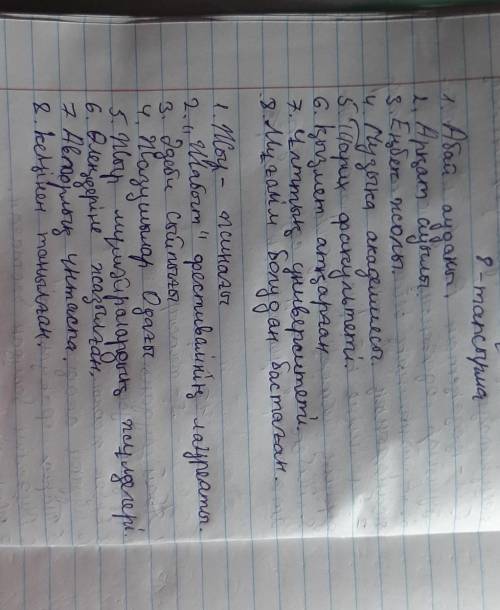 8-тапсырма
1. Абай ауданы,
2. Арқат ауылы.
3. Еңбек жолы.
4. Музыка академиясы
5. Тарих факультеті.
6. Қызмет атқарған
7. Ұлттық университеті.
8. Мұғалім болудан бастаған.
1. Жыр-жинағы
2. "Шабыт" фестивалінің лауреаты.
3. Әдеби сыйлығы
4. Жазушылар Одағы
5. Жыр мүшәйралардың жүлдегері.
6. Өлеңдеріне жазылған,
7. Авторлық үнтаспа.
8. Кеңінен танылған.